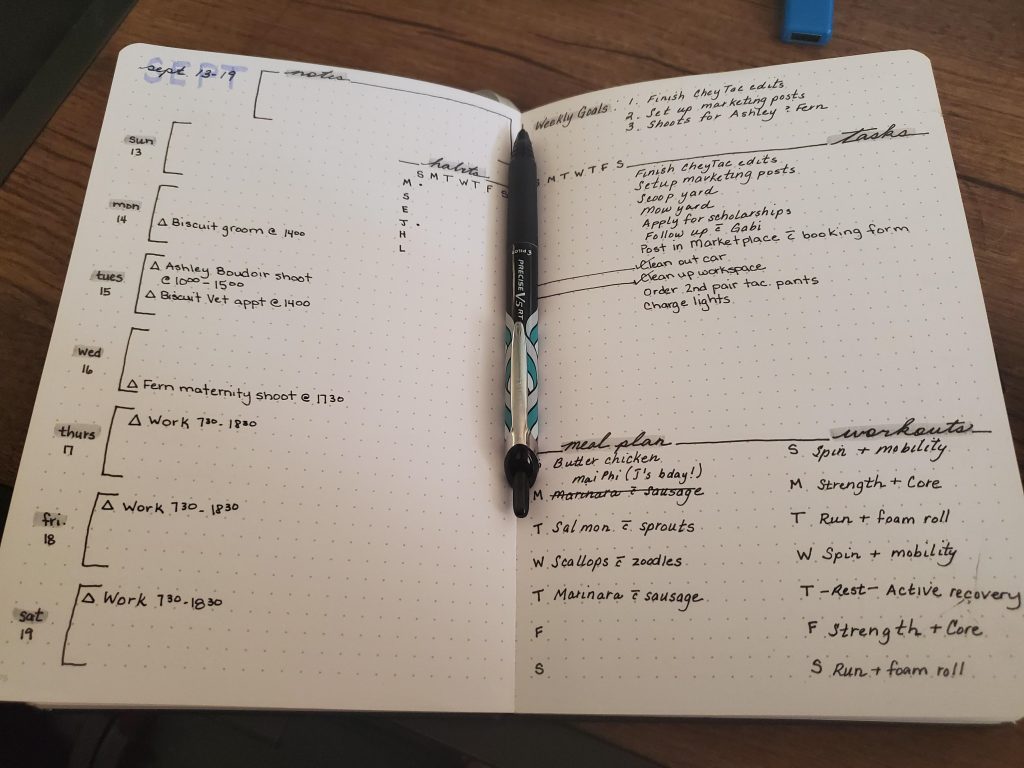 SEPT
sept 13-19
notes
sun
13
mon
14
△ Biscuit groom @ 1400
tues
15
△ Ashley Boudoir shoot
@ 1000-1500
△ Biscuit Vet appt @ 1400
wed
16
△ Fern maternity shoot @ 1730
thurs
17
△ Work 730-1830
fri.
18
△ Work 730-1830
sat
19
△ Work 730-1830
habits
S M T W T F S
M
S
E
J
H
L
PRECISE V5 RT
Weekly Goals
1. Finish CheyTac edits
2. Set up marketing posts
3. Shoots for Ashley ? Fern
tasks
M T W T F S
Finish CheyTac edits
Setup marketing posts
Scoop yard
Mow yard
Apply for scholarships
Follow up c̄ Gabi
Post in Marketplace c̄ booking form
Clean out car
Clean up workspace
Order 2nd pair tac. pants
Charge lights
meal plan
Butter chicken
Mai Phi (J's bday!)
M Marinara c̄ Sausage
T Salmon c̄ sprouts
W Scallops c̄ zoodles
T Marinara c̄ sausage
F
S
workouts
S Spin + mobility
M Strength + Core
T Run + foam roll
W Spin + mobility
T -Rest- Active recovery
F Strength + Core
S Run + foam roll